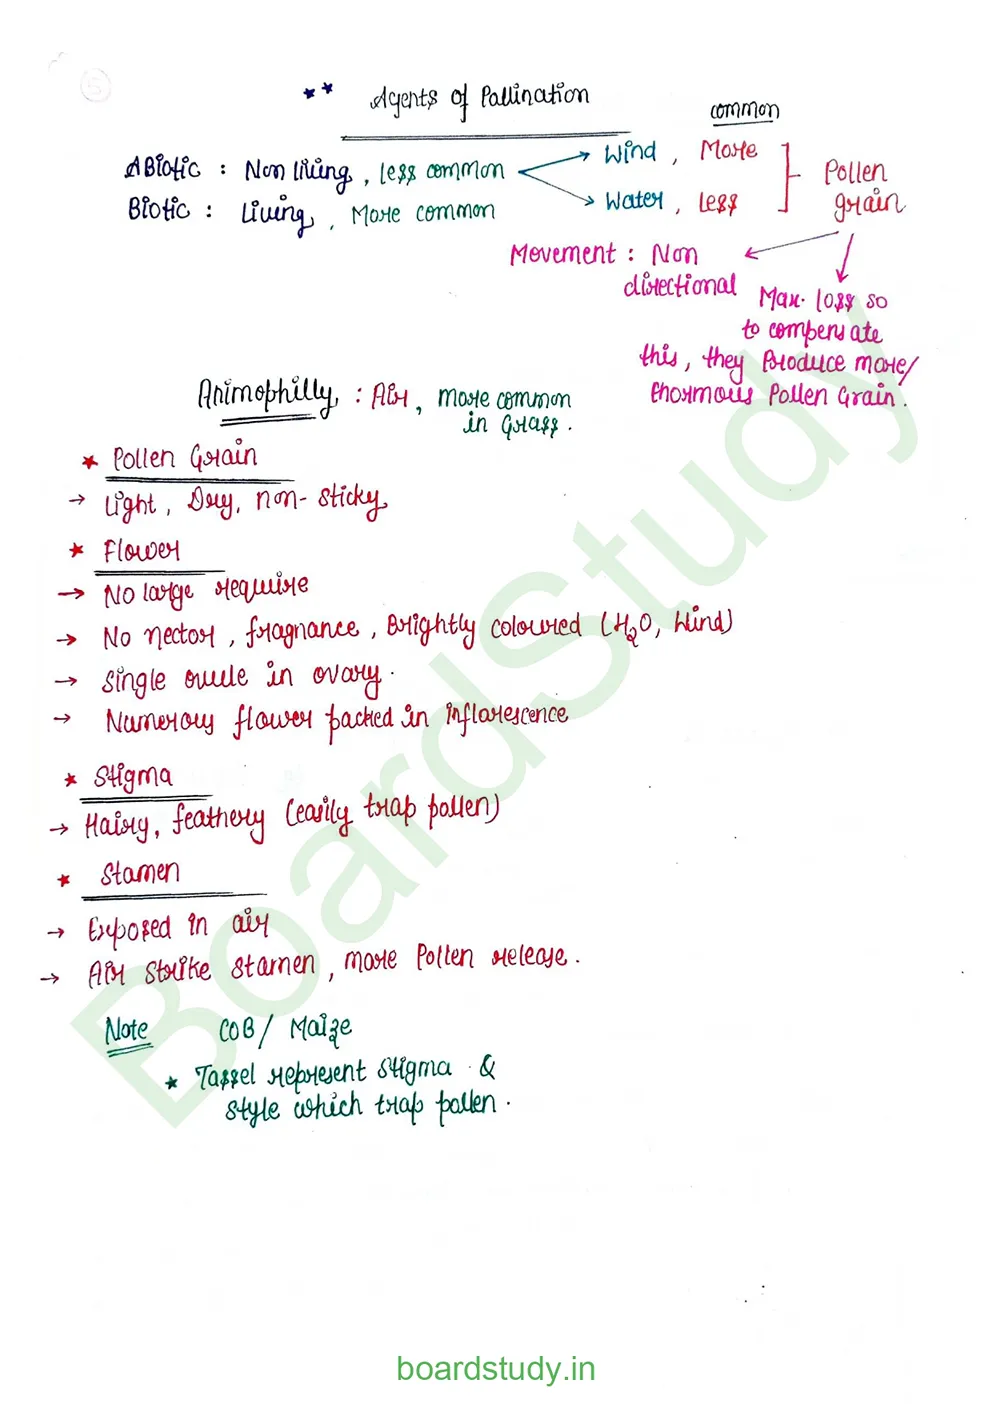 5
** Agents of Pallination
common
ABiotic : Non living, less common → Wind, More
→ Water, Less
Pollen grain
Biotic : Living, More common
Movement : Non directional
Max. loss so
to compensate
this, they Produce more/
Enormous Pollen Grain.
Animophilly : Air, more common
in Grass.
* Pollen Grain
→ Light, Dry, non-sticky
* Flower
→ No large require
→ No nector, fragnance, Brightly coloured (H₂O, Wind)
→ Single ovule in ovary.
→ Numerous flower packed in inflorescence
* Stigma
→ Hairy, feathery (easily trap pollen)
* Stamen
→ Exposed in air
→ Air strike stamen, more Pollen release.
Note COB / Maize
* Tassel represent stigma &
style which trap pollen.
BoardStudy
boardstudy.in